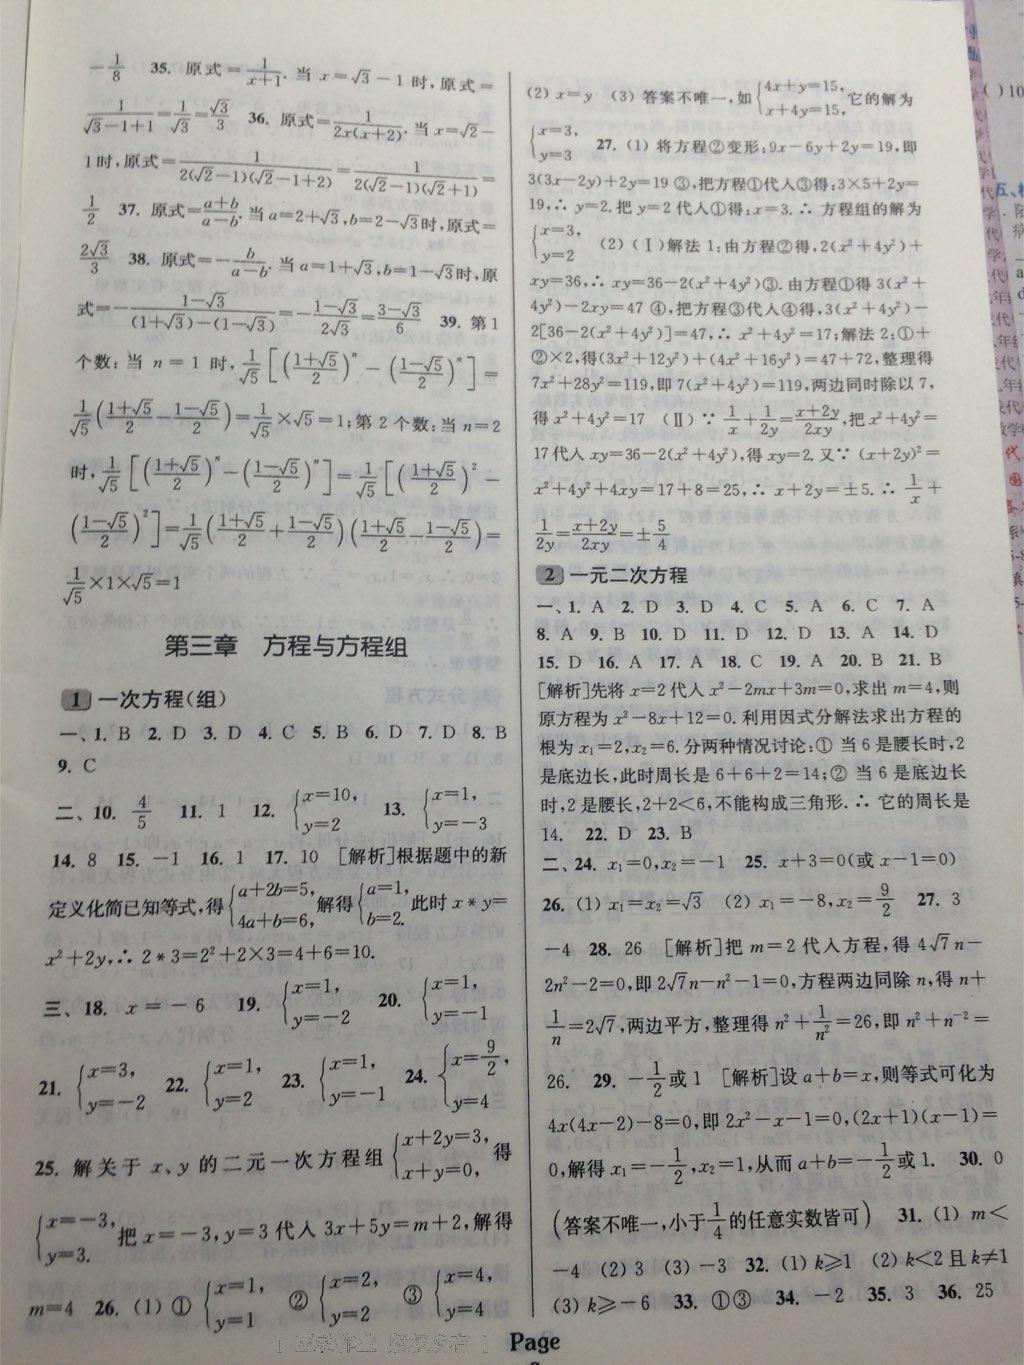 -1/8 35. 原式=1/(x+1). 当 x=√3-1 时,原式=
1/(√3-1+1)=1/√3=√3/3 36. 原式=1/(2x(x+2)). 当 x=√2-
1时,原式=1/(2(√2-1)(√2-1+2))=1/(2(√2-1)(√2+1))=
1/2 37. 原式=(a+b)/(a-b). 当 a=2+√3,b=2-√3时,原式=
2√3/3 38. 原式=-b/(a-b). 当 a=1+√3,b=1-√3时,原
式=-(1-√3)/((1+√3)-(1-√3))=-(1-√3)/(2√3)=(3-√3)/6 39. 第1
个数:当 n=1 时,1/√5[((1+√5)/2)ⁿ-((1-√5)/2)ⁿ]=
1/√5((1+√5)/2-(1-√5)/2)=1/√5×√5=1;第2个数:当 n=2
时,1/√5[((1+√5)/2)ⁿ-((1-√5)/2)ⁿ]=1/√5[((1+√5)/2)²-
((1-√5)/2)²]=1/√5((1+√5)/2+(1-√5)/2)((1+√5)/2-(1-√5)/2)=
1/√5×1×√5=1
第三章 方程与方程组
1 一次方程(组)
一、1. B 2. D 3. D 4. C 5. B 6. D 7. D 8. B
9. C
二、10. 4/5 11. 1 12. {x=10, y=2 13. {x=1, y=-3
14. 8 15. -1 16. 1 17. 10 [解析]根据题中的新
定义化简已知等式,得{a+2b=5, 4a+b=6, 解得{a=1, b=2. 此时 x*y=
x²+2y,∴ 2*3=2²+2×3=4+6=10.
三、18. x=-6 19. {x=1, y=-2 20. {x=1, y=-1
21. {x=3, y=-2 22. {x=1, y=2 23. {x=1, y=-1 24. {x=9/2, y=4
25. 解关于 x、y 的二元一次方程组{x+2y=3, x+y=0, 得
{x=-3, y=3. 把 x=-3,y=3 代入 3x+5y=m+2,解得
m=4 26. (1) ① {x=1, y=1 ② {x=2, y=2 ③ {x=4, y=4
(2) x=y (3) 答案不唯一,如{4x+y=15, x+4y=15, 它的解为
{x=3, y=3 27. (1) 将方程②变形:9x-6y+2y=19,即
3(3x-2y)+2y=19 ③,把方程①代入③得:3×5+2y=
19,∴ y=2. 把 y=2 代入①得:x=3. ∴ 方程组的解为
{x=3, y=2 (2) (Ⅰ)解法1:由方程②得,2(x²+4y²)+
xy=36,∴ xy=36-2(x²+4y²)③. 由方程①得 3(x²+
4y²)-2xy=47 ④,把方程③代入④得,3(x²+4y²)-
2[36-2(x²+4y²)]=47,∴ x²+4y²=17;解法2:①+
②×2,得(3x²+12y²)+(4x²+16y²)=47+72,整理得
7x²+28y²=119,即 7(x²+4y²)=119,两边同时除以7,
得 x²+4y²=17 (Ⅱ) ∵ 1/x+1/2y=(x+2y)/2xy,把 x²+4y²=
17代入 xy=36-2(x²+4y²),得 xy=2. 又∵ (x+2y)²=
x²+4y²+4xy=17+8=25,∴ x+2y=±5. ∴ 1/x+
1/2y=(x+2y)/2xy=±5/4
2 一元二次方程
一、1. A 2. D 3. D 4. C 5. A 6. C 7. A
8. A 9. B 10. D 11. D 12. D 13. A 14. D
15. D 16. A 17. A 18. C 19. A 20. B 21. B
[解析]先将 x=2 代入 x²-2mx+3m=0,求出 m=4,则
原方程为 x²-8x+12=0. 利用因式分解法求出方程的
根为 x₁=2,x₂=6. 分两种情况讨论:① 当6是腰长时,2
是底边长,此时周长是 6+6+2=14;② 当6是底边长
时,2是腰长,2+2<6,不能构成三角形. ∴ 它的周长是
14. 22. D 23. B
二、24. x₁=0,x₂=-1 25. x+3=0(或 x-1=0)
26. (1) x₁=x₂=√3 (2) x₁=-8,x₂=9/2 27. 3
-4 28. 26 [解析]把 m=2 代入方程,得 4√7n-
2n²-2=0,即 2√7n-n²-1=0,方程两边同除 n,得 n+
1/n=2√7,两边平方,整理得 n²+1/n²=26,即 n²+n⁻²=
26. 29. -1/2或1 [解析]设 a+b=x,则等式可化为
4x(4x-2)-8=0,即 2x²-x-1=0,(2x+1)(x-1)=
0,解得 x₁=-1/2,x₂=1,从而 a+b=-1/2或1. 30. 0
(答案不唯一,小于1/4的任意实数皆可) 31. (1) m<
-4 (2) 3 (3) -3 32. (1) k≥1 (2) k<2且k≠1
(3) k≥-6 33. ①③ 34. -2 35. 3 36. 25
Page